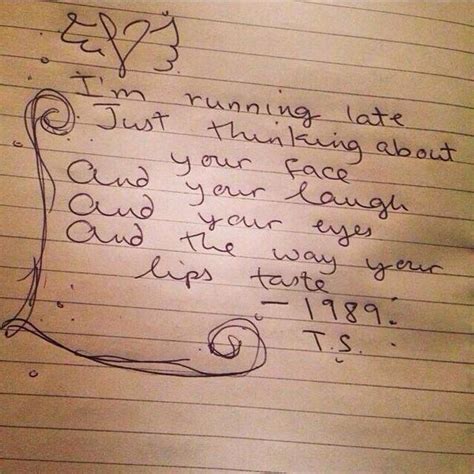 I'm running late
Just thinking about
your face
And your laugh
And your eyes
And the way your
lips taste
- 1989.
T.S.